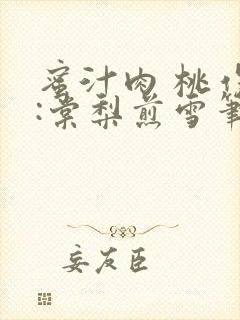 蜜汁肉桃
:棠梨煎雪筆
妄友臣